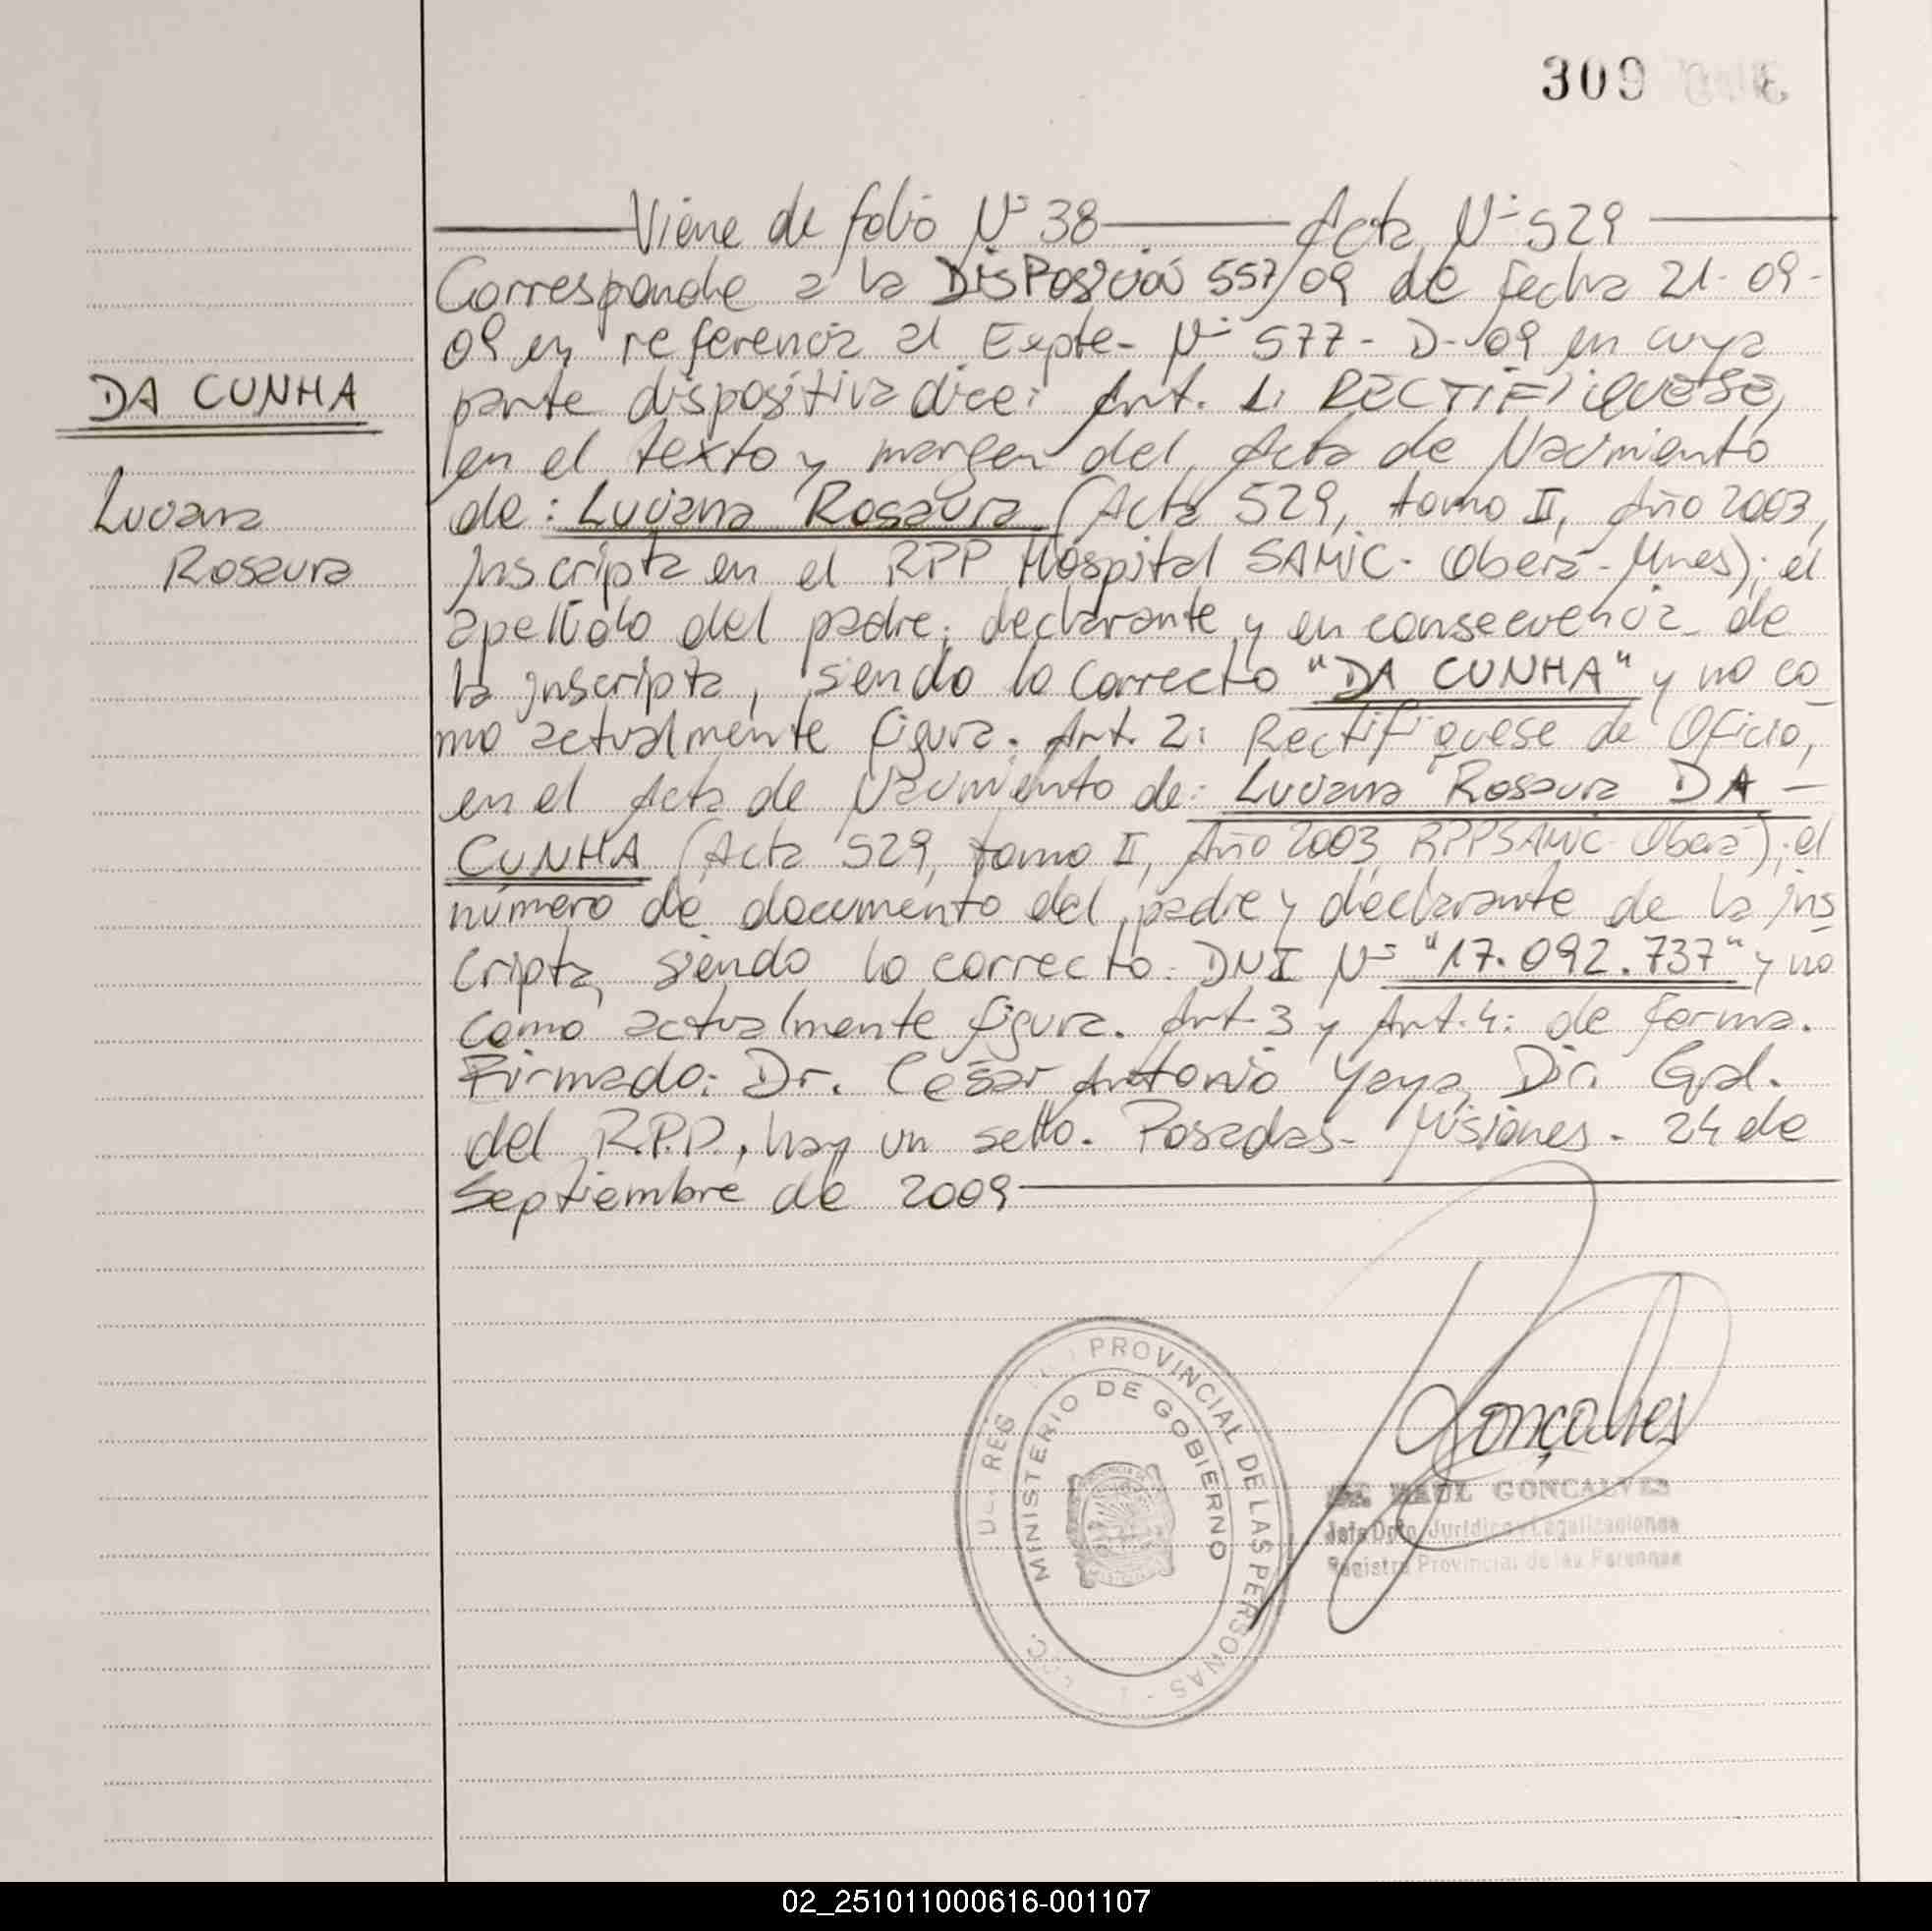 309
Viene de folio Nº 38 Acta Nº 529
Corresponde a la DisPosición 557/09 de fecha 21-09-
09 en referencia al Expte- Nº 577-D-09 en cuya
DA CUNHA
parte dispositiva dice: Art. 1: RECTIFIQUESE,
en el texto y margen del Acta de Nacimiento
Luciana
de: Luciana Rosaura (Acta 529, tomo II, Año 2003,
Rosaura
inscripta en el RPP Hospital SAMIC- Oberá-Mnes); el
apellido del padre, declarante y en consecuencia de
la inscripta, siendo lo correcto "DA CUNHA" y no co
mo actualmente figura. Art. 2: Rectifiquese de Oficio,
en el Acta de Nacimiento de: Luciana Rosaura DA -
CUNHA (Acta 529, tomo II, Año 2003, RPPSAMIC Oberá); el
número de documento del padre y declarante de la ins
cripta, siendo lo correcto: DNI Nº "17.092.737" y no
como actualmente figura. Art. 3 y Art. 4: de forma.
Firmado: Dr. César Antonio Yaya Dir. Gral.
del R.P.P., hay un sello. Posadas- Misiones- 24 de
Septiembre de 2009
PROVINCIAL DE LAS PERSONAS
MINISTERIO DE GOBIERNO
Gonçalves
RAUL GONCALVES
Jefe Dpto. Jurídico y Legalizaciones
Registro Provincial de las Personas
02_251011000616-001107